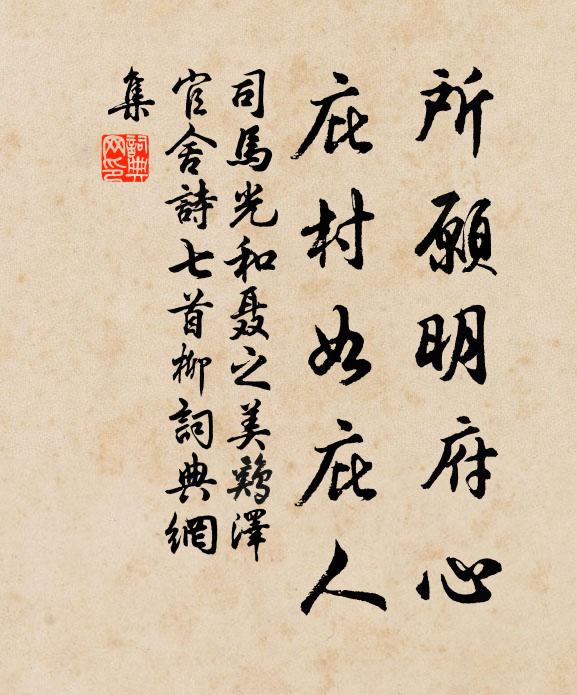 所願明府心
庇村如庇人
司馬光和聶之美鷄澤
官舍詩七首柳詞典網
集
詞典
网印